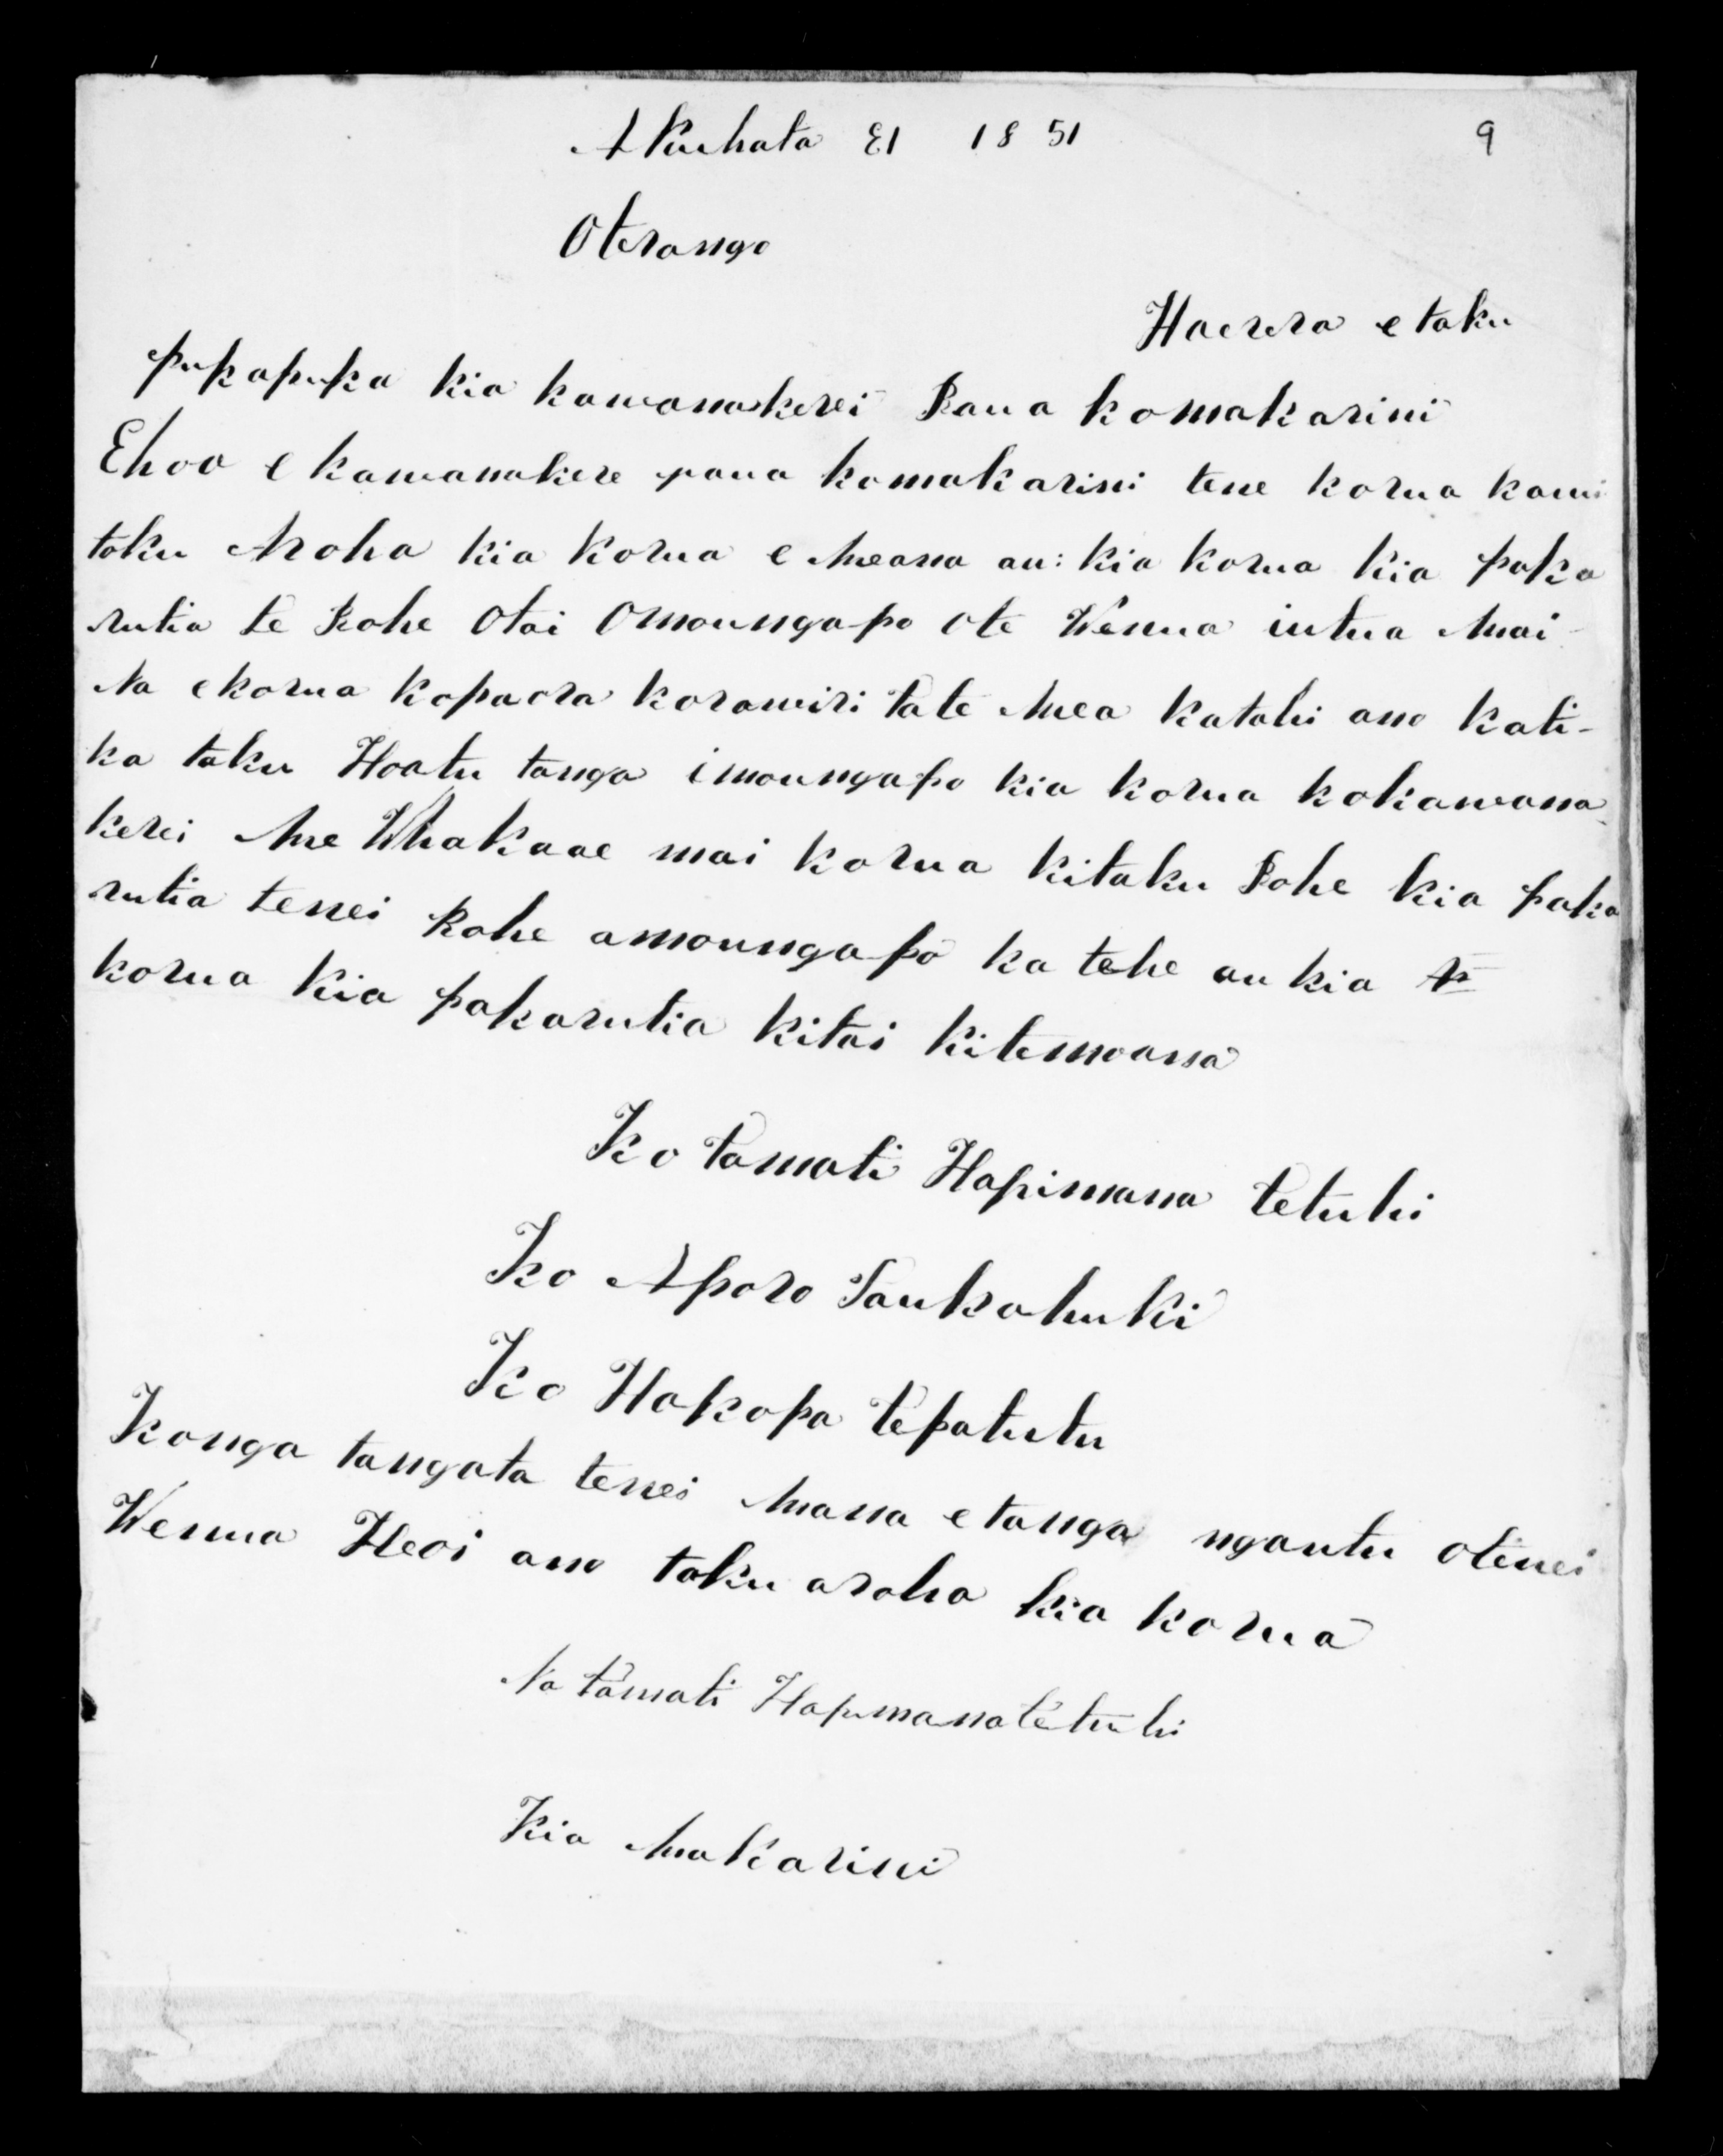 Akuhata 31 1851 9
Oterongo
Haerera e taku
pukapuka kia kawanakerei Raua komakarini
Ehoa e kawanakere raua komakarini tene korua kanui
toku Aroha kia korua e Meana au: kia korua kia paka
rutia te Rohe Otai Omoungapo Ote Wenua iutua Mai
Na ekorua kopaora korawiri Tate Mea katahi ano kati-
ka taku Hoatu tanga imoungapo kia korua kokawana
kerei Me Whakaae mai korua kitaku Rohe kia paka
rutia tenei Rohe amoungapo ka tohe au kia
korua kia pakarutia kitai kitemoana
Ko Tamati Hapimana Tetuhi
Ko Aporo Taukahuki
Ko Hakopa Tepatutu
Konga tangata tenei Mana e tanga ngautu otenei
Wenua Heoi ano toku aroha kia korua
Na Tamati Hapimana Tetuhi
Kia Makarini